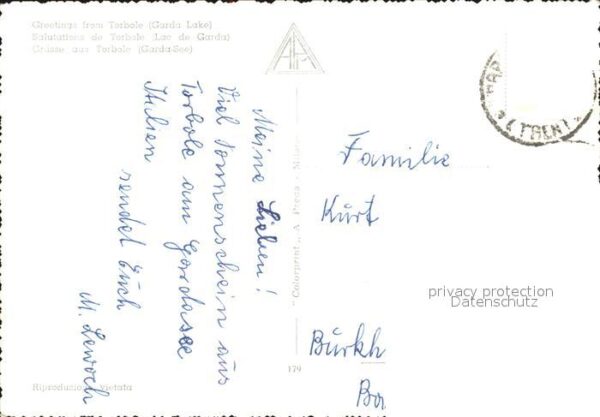 Greetings from Torbole (Garda Lake)
Salutations de Torbole (Lac de Garda)
Grüsse aus Torbole (Garda-See)
Meine Lieben!
Viel Sonnenschein aus
Torbole am Gardasee
Italien
sendet Euch
M. Lewoch
"Colorprint" A. Preda - Milano
Familie
Kurt
Burkh
Ba
privacy protection
Datenschutz
179
Riproduzione Vietata